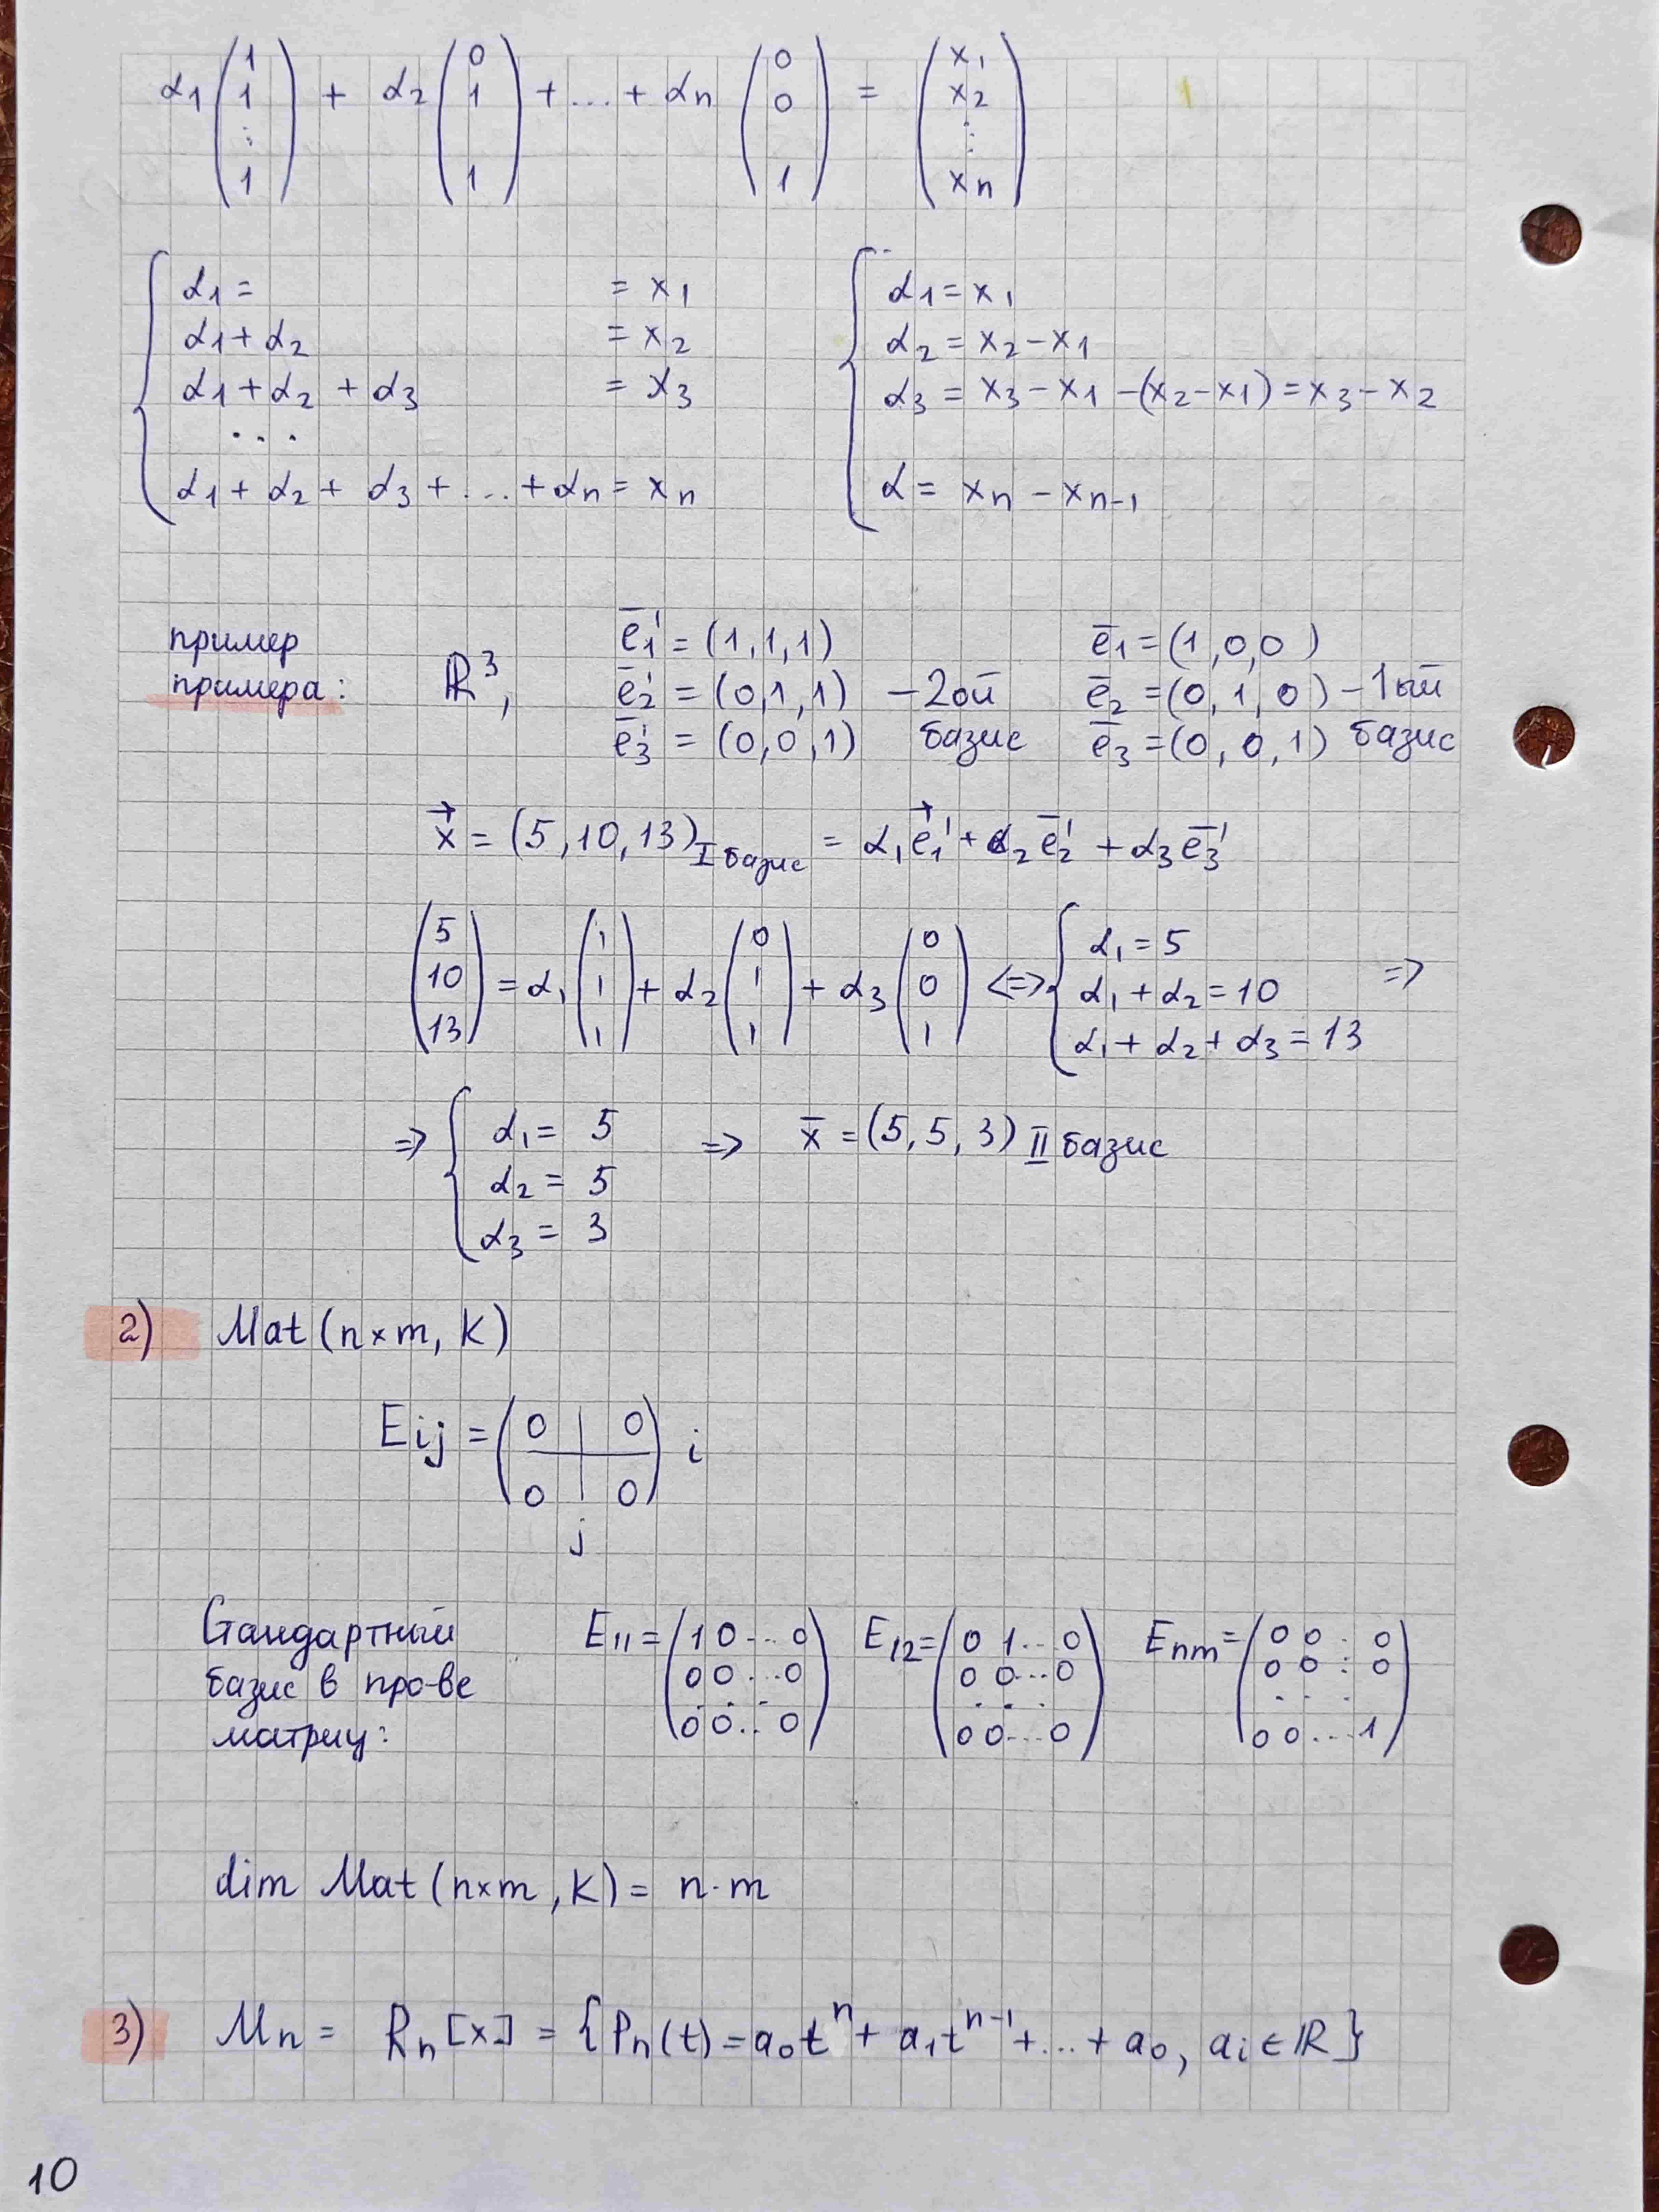 α₁ (1 1 ⋮ 1) + α₂ (0 1 1) + ... + αn (0 0 1) = (x₁ x₂ ⋮ xn)
{ α₁ = = x₁
α₁ + α₂ = x₂
α₁ + α₂ + α₃ = x₃
. . .
α₁ + α₂ + α₃ + ... + αn = xn
{ α₁ = x₁
α₂ = x₂ - x₁
α₃ = x₃ - x₁ - (x₂ - x₁) = x₃ - x₂
α = xn - xn-1
пример
примера: ℝ³,
e̅₁' = (1, 1, 1)
e̅₂' = (0, 1, 1) - 2ой
e̅₃' = (0, 0, 1) базис
e̅₁ = (1, 0, 0)
e̅₂ = (0, 1, 0) - 1ый
e̅₃ = (0, 0, 1) базис
x⃗ = (5, 10, 13) I базис = α₁e⃗₁' + α₂e̅₂' + α₃e̅₃'
(5 10 13) = α₁ (1 1 1) + α₂ (0 1 1) + α₃ (0 0 1) <=> { α₁ = 5
α₁ + α₂ = 10 =>
α₁ + α₂ + α₃ = 13
=> { α₁ = 5 => x̅ = (5, 5, 3) II базис
α₂ = 5
α₃ = 3
2) Mat (n×m, K)
Eij = (0 | 0) i
(0 | 0)
j
Стандартный
базис в про-ве
матриц:
E₁₁ = (1 0 ... 0
0 0 ... 0
. . .
0 0 .. 0)
E₁₂ = (0 1 ... 0
0 0 ... 0
. . .
0 0 ... 0)
Enm = (0 0 : 0
0 0 : 0
. . .
0 0 ... 1)
dim Mat (n×m, K) = n·m
3) Mn = Rn [x] = {Pn(t) = a₀tⁿ + a₁tⁿ⁻¹ + ... + a₀, ai ∈ ℝ}
10